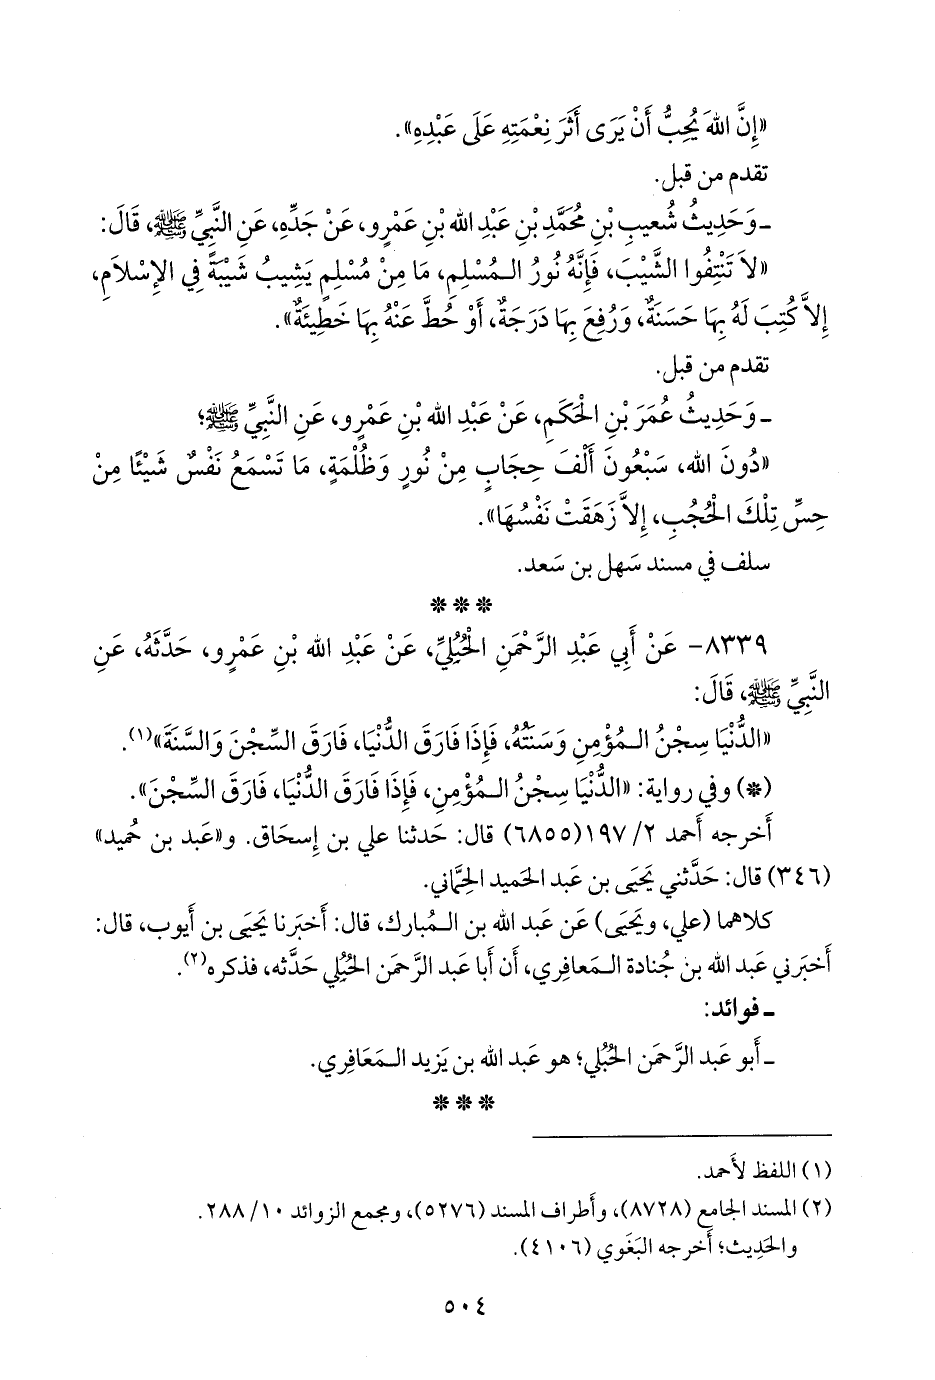 «إِنَّ اللهَ يُحِبُّ أَنْ يَرَى أَثَرَ نِعْمَتِهِ عَلَى عَبْدِهِ».
تقدم من قبل.
ـ وَحَدِيثُ شُعيبِ بْنِ مُحَمَّدِ بْنِ عَبْدِ الله بْنِ عَمْرٍو، عَنْ جَدِّهِ، عَنِ النَّبِيِّ ﷺ، قَالَ:
«لاَ تَنْتِفُوا الشَّيْبَ، فَإِنَّهُ نُورُ الـمُسْلِمِ، مَا مِنْ مُسْلِمٍ يَشِيبُ شَيْبَةً فِي الإِسْلاَمِ،
إِلاَّ كُتِبَ لَهُ بِهَا حَسَنَةٌ، وَرُفِعَ بِهَا دَرَجَةٌ، أَوْ حُطَّ عَنْهُ بِهَا خَطِيئَةٌ».
تقدم من قبل.
ـ وَحَدِيثُ عُمَرَ بْنِ الْحَكَمِ، عَنْ عَبْدِ الله بْنِ عَمْرٍو، عَنِ النَّبِيِّ ﷺ؛
«دُونَ الله، سَبْعُونَ أَلْفَ حِجَابٍ مِنْ نُورٍ وَظُلْمَةٍ، مَا تَسْمَعُ نَفْسٌ شَيْئًا مِنْ
حِسِّ تِلْكَ الْحُجُبِ، إِلاَّ زَهَقَتْ نَفْسُهَا».
سلف في مسند سَهل بن سَعد.
* * *
٨٣٣٩- عَنْ أَبِي عَبْدِ الرَّحْمَنِ الْحُبُلِيِّ، عَنْ عَبْدِ الله بْنِ عَمْرٍو، حَدَّثَهُ، عَنِ
النَّبِيِّ ﷺ، قَالَ:
«الدُّنْيَا سِجْنُ الـمُؤْمِنِ وَسَنَتُهُ، فَإِذَا فَارَقَ الدُّنْيَا، فَارَقَ السِّجْنَ وَالسَّنَةَ»(١).
(*) وفي رواية: «الدُّنْيَا سِجْنُ الـمُؤْمِنِ، فَإِذَا فَارَقَ الدُّنْيَا، فَارَقَ السِّجْنَ».
أَخرجه أَحمد ٢/ ١٩٧(٦٨٥٥) قال: حَدثنا علي بن إِسحَاق. و«عَبد بن حُميد»
(٣٤٦) قال: حَدَّثني يَحيَى بن عَبد الحَميد الحِمَّاني.
كلاهما (علي، ويَحيَى) عَن عَبد الله بن الـمُبارك، قال: أَخبَرنا يَحيَى بن أَيوب، قال:
أَخبَرني عَبد الله بن جُنادة الـمَعافِري، أَن أَبا عَبد الرَّحمَن الحُبُلي حَدَّثه، فذكره(٢).
ـ فوائد:
ـ أَبو عَبد الرَّحمَن الحُبُلي؛ هو عَبد الله بن يَزيد الـمَعَافِري.
* * *
(١) اللفظ لأَحمد.
(٢) المسند الجامع (٨٧٢٨)، وأَطراف المسند (٥٢٧٦)، ومجمع الزوائد ١٠/ ٢٨٨.
والحَدِيث؛ أَخرجه البَغَوي (٤١٠٦).
٥٠٤